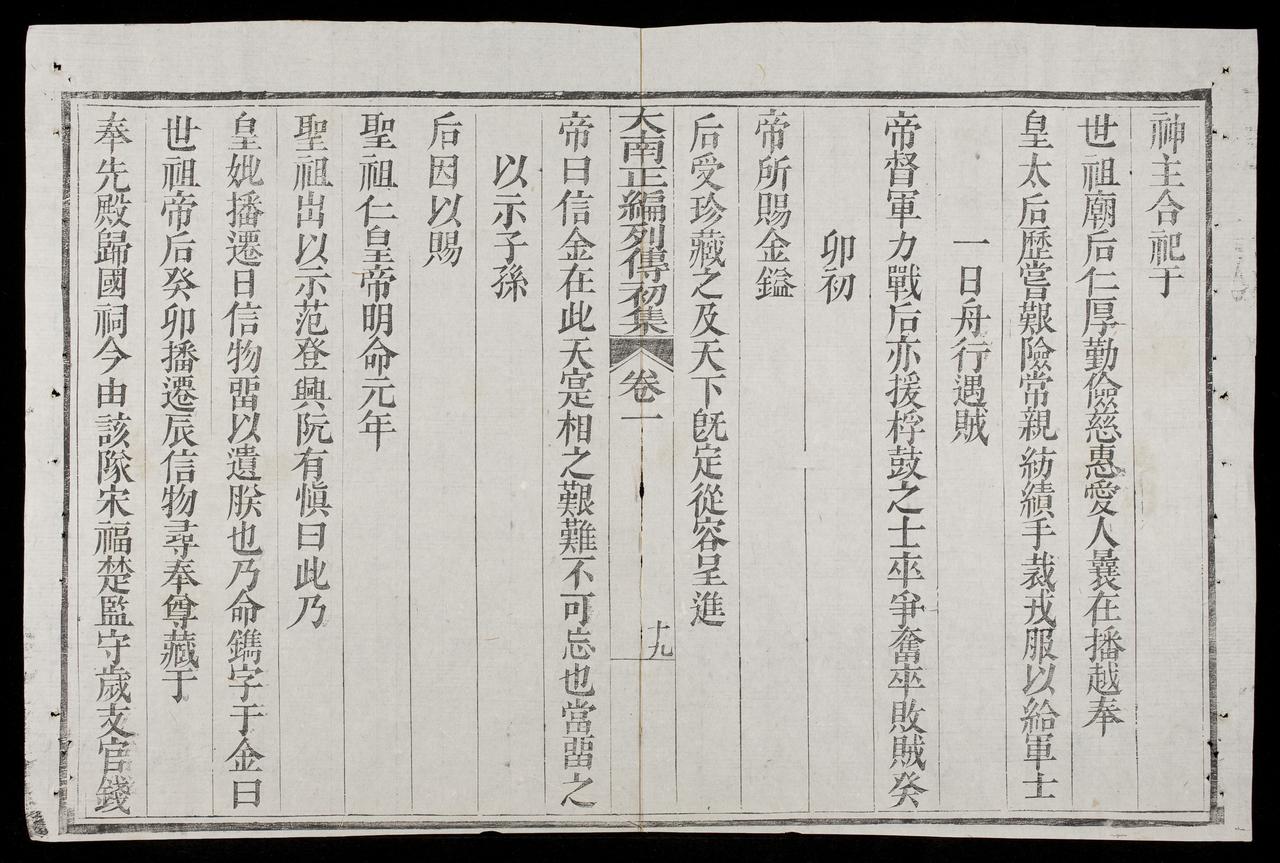 神主合祀于
世祖廟后仁厚勤儉慈惠愛人曩在播越奉
皇太后歷嘗艱險常親紡績手裁戎服以給軍士
一日舟行遇賊
帝督軍力戰后亦援桴鼓之士卒爭奮卒敗賊癸
卯初
帝所賜金鎰
后受珍藏之及天下旣定從容呈進
大南正編列傳初集 卷一 十九
帝曰信金在此天寔相之艱難不可忘也當畱之
以示子孫
后因以賜
聖祖仁皇帝明命元年
聖祖出以示范登興阮有愼曰此乃
皇妣播遷日信物畱以遺朕也乃命鐫字于金曰
世祖帝后癸卯播遷辰信物尋奉尊藏于
奉先殿歸國祠今由該隊宋福楚監守歲支官錢